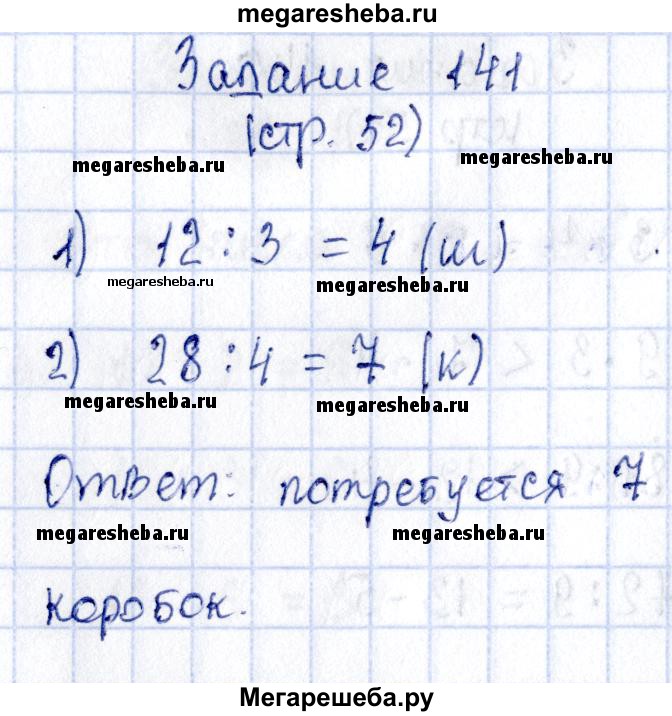 megaresheba.ru
Задание 141
(стр. 52)
megaresheba.ru megaresheba.ru
1) 12 : 3 = 4 (ш)
megaresheba.ru megaresheba.ru
2) 28 : 4 = 7 (к)
megaresheba.ru megaresheba.ru
Ответ: потребуется 7
megaresheba.ru megaresheba.ru
коробок.
Мегарешеба.ру